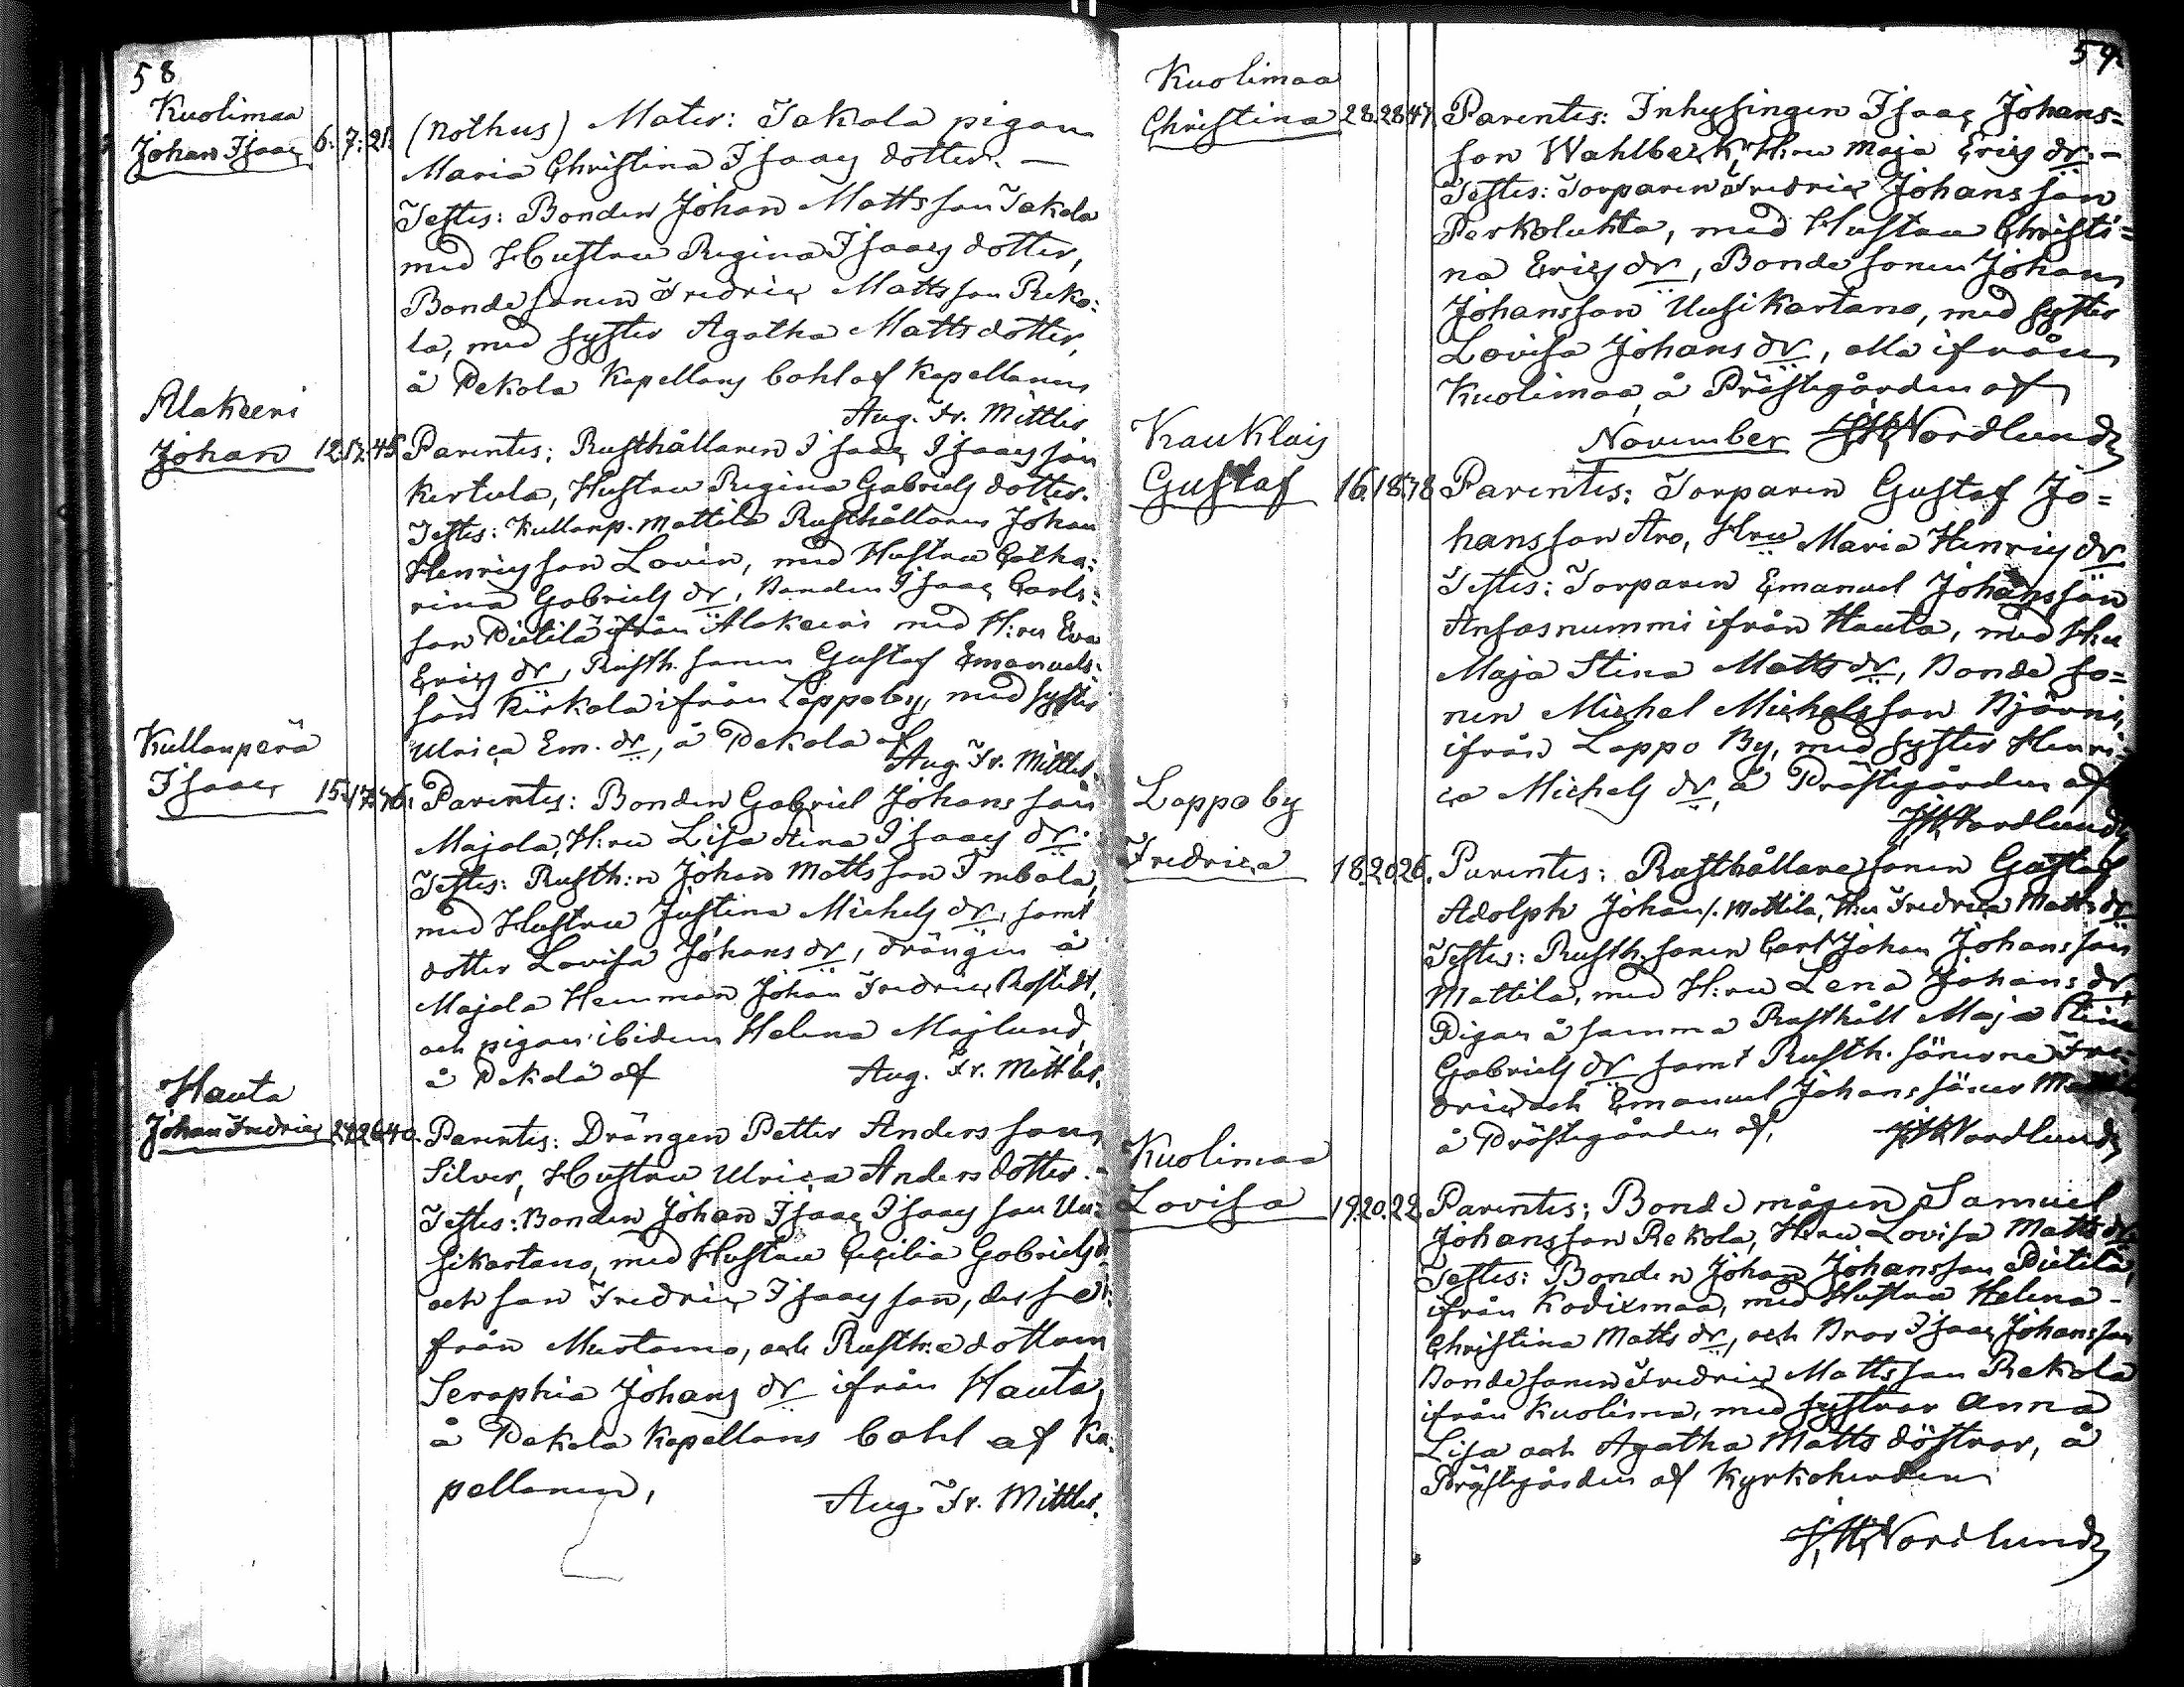 58
Kuolimaa
Johan Isaac 6. 7. 21. (Nothus) Mater: Jakola pigan
Maria Christina Isaacs dotter. —
Testes: Bonden Johan Mattsson Jakola
med Hustru Regina Isaacs dotter,
Bondesonen Fredric Mattsson Reko:
la, med syster Agatha Matts dotter,
å Pekola Kapellans bohl af Kapellanen
Aug. Fr. Mittler
Alakeeri
Johan 12. 17. 45 Parentes: Rusthållaren Isaac Isaacsson
Kertula, Hustru Regina Gabriels dotter.
Testes: Kullanp. Mattila Rusthållaren Johan
Henricsson Lovin, med Hustru Catha:
rina Gabriels dr, Bonden Isaac Carls:
son Pietilä ifrån Alakeeri med H:ru Eva
Erics dr, Rusth. sonen Gustaf Emanuels-
son Kirkola ifrån Lappoby, med syster
Ulrica Em. dr, å Pekola af
Aug. Fr. Mittler.
Kullanperä
Isaac 15. 17. 76. Parentes: Bonden Gabriel Johansson
Majola, H:ru Lisa Stina Isaacs dr.
Testes: Rusth:n Johan Mattsson Imbola,
med Hustru Justina Michels dr, samt
dotter Lovisa Johans dr, drängen å
Majola Hemman Johan Fredric Rostedt,
och pigan ibidem Helena Majlund,
å Pekola af Aug. Fr. Mittler.
Hauta
Johan Fredric 24. 26. 40. Parentes: Drängen Petter Andersson
Silver, Hustru Ulrica Anders dotter. -
Testes: Bonden Johan Isaac Isaacsson Uu:
sikartano, med Hustru Cecilia Gabriels dr
och son Fredric Isaacsson, desse
från Murtamo, och Rusth:e dottern
Seraphia Johans dr ifrån Hauta,
å Pekola Kapellans bohl af Ka:
pellanen, Aug. Fr. Mittler.
59
Kuolimaa
Christina 28. 28. 47. Parentes: Inhysingen Isaac Johans=
son Wahlbeck, H:ru Maja Erics dr. -
Testes: Torparen Fredric Johansson
Perkolukta, med Hustru Christi=
na Erics dr, Bondesonen Johan
Johansson Uusikartano, med syster
Lovisa Johans dr, alla ifrån
Kuolimaa, å Prästegården af
November Nordlund
Kauklais
Gustaf 16. 18. 78 Parentes: Torparen Gustaf Jo=
hansson Aro, Hru Maria Henrics dr
Testes: Torparen Emanuel Johansson
Ansasnummi ifrån Hauta, med H:ru
Maja Stina Matts dr, Bonde so=
nen Michel Michelsson Björni,
ifrån Lappo By, med syster Henri=
ca Michels dr, å Prästegården af
Nordlund
Lappoby
Fredrica 18. 20. 26. Parentes: Rusthållaresonen Gustaf
Adolph Johans. Mattila, H:ru Fredrica Matts dr
Testes: Rusth. sonen Carl Johan Johansson
Mattila, med H:ru Lena Johans dr,
Pigan å samma Rusthåll Maja Stina
Gabriels dr samt Rusth. sönerne Fre-
dric och Emanuel Johanssöner
å Prästegården af, Nordlund
Kuolimaa
Lovisa 19. 20. 22. Parentes: Bonde mågen Samuel
Johansson Rekola, H:ru Lovisa Matts dr
Testes: Bonden Johan Johansson Pietilä,
ifrån Kodixmaa, med Hustru Helena -
Christina Matts dr, och Bror Isaac Johansson
Bondesonen Fredric Mattsson Rekola
ifrån Kuolima, med systrar Anna
Lisa och Agatha Matts döttrar, å
Prästegården af Kyrkoherden
Nordlund